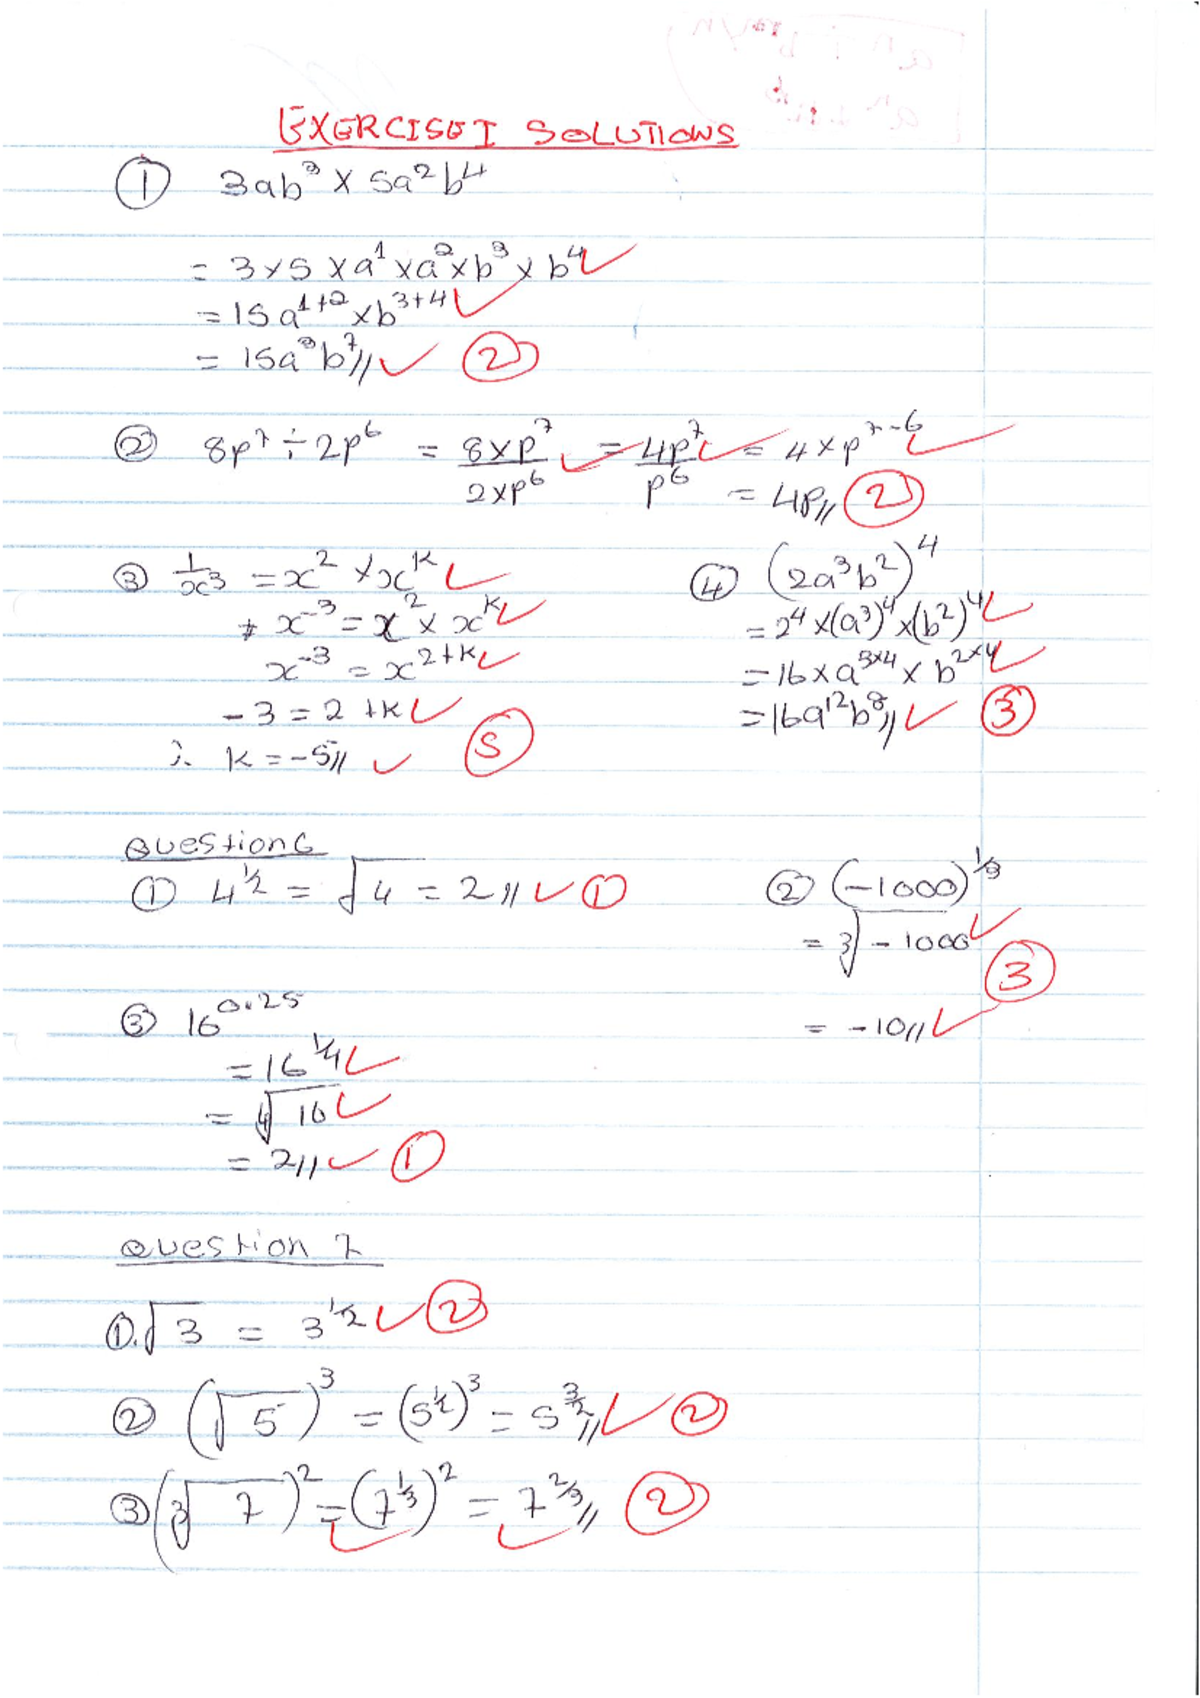 EXERCISE I SOLUTIONS
① 3ab³ × 5a²b⁴
= 3 × 5 × a¹ × a² × b³ × b⁴ ✓
= 15a¹⁺² × b³⁺⁴ ✓
= 15a³b⁷// ✓ ②
② 8p⁷ ÷ 2p⁶ = 8×p⁷/2×p⁶ ✓ = 4p⁷/p⁶ ✓ = 4 × p⁷⁻⁶ ✓
= 4p// ②
③ 1/x³ = x² × xᵏ ✓
x⁻³ = x² × xᵏ ✓
x⁻³ = x²⁺ᵏ ✓
-3 = 2 + k ✓
∴ k = -5// ✓ ⑤
④ (2a³b²)⁴
= 2⁴ × (a³)⁴ × (b²)⁴ ✓
= 16 × a³ˣ⁴ × b²ˣ⁴ ✓
= 16a¹²b⁸// ✓ ③
Question 6
① 4^½ = √4 = 2// ✓ ①
② (-1000)^⅓
= ∛-1000 ✓
③
= -10// ✓
③ 16^0.25
= 16^¼ ✓
= ∜16 ✓
= 2// ✓ ①
Question 7
①. √3 = 3^½ ✓ ②
② (√5)³ = (5^½)³ = 5^3/2// ✓ ②
③ (∛7)² = (7^⅓)² = 7^⅔// ②